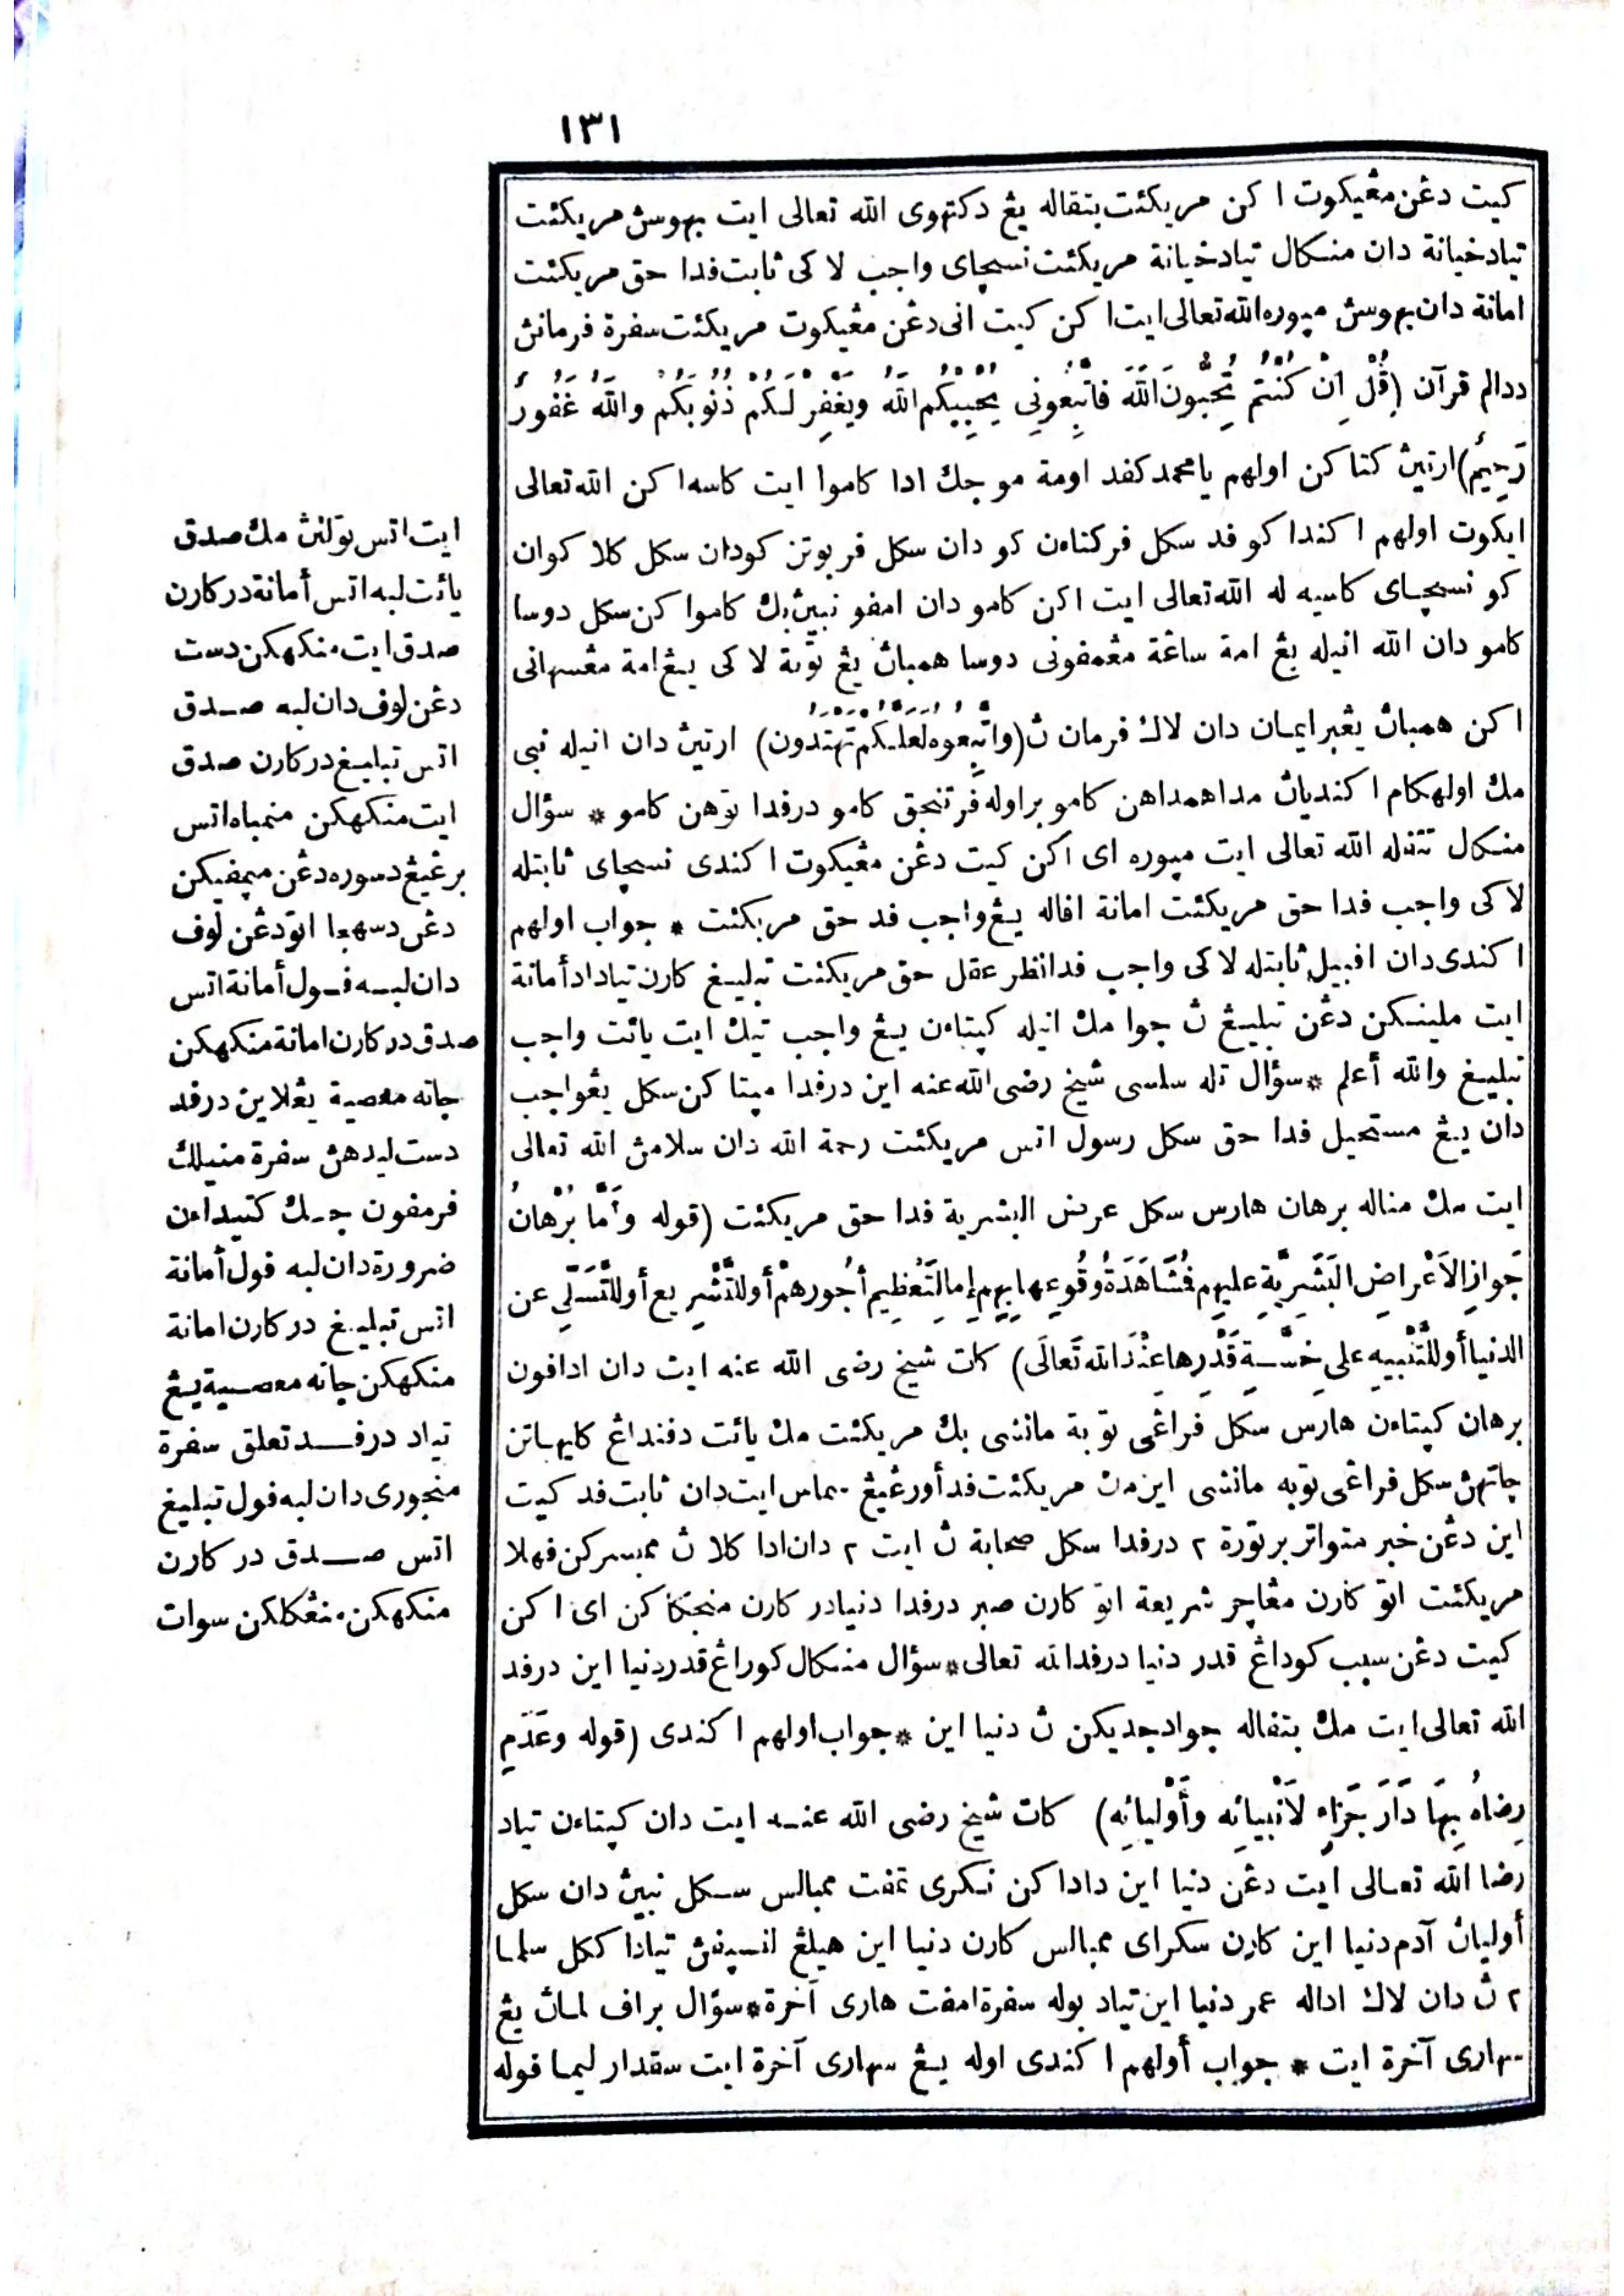 ١٣١
كيت دڠن مڠيكوت اكن مريكئت بتقاله يڠ دكتهوى الله تعالى ايت بهوسڽ مريكئت
تياد خيانة دان منكال تياد خيانة مريكئت نسچاى واجب لاكى ثابت فدا حق مريكئت
امانة دان بهوسڽ مپوره الله تعالى ايت اكن كيت انى دڠن مڠيكوت مريكئت سفرة فرمانڽ
ددالم قرآن (قُلْ اِنْ كُنْتُمْ تُحِبُّونَ اللَّهَ فَاتَّبِعُونِى يُحْبِبْكُمُ اللَّهُ وَيَغْفِرْ لَكُمْ ذُنُوبَكُمْ وَاللَّهُ غَفُورٌ
رَحِيْمٌ) ارتيڽ كتاكن اولهم يا محمد كفد اومة مو جك ادا كامو ايت كاسه اكن الله تعالى
ايكوت اولهم اكندا كو فد سكل فركتاءن كو دان سكل فربوتن كودان سكل كلاكوان
كو نسچاى كاسيه له الله تعالى ايت اكن كامو دان امفو نيڽ بك كامو اكن سكل دوسا
كامو دان الله انيله يڠ امة ساڠة مڠمفونى دوسا همباڽ يڠ توبة لاكى يڠ امة مڠسهانى
اكن همباڽ يڠبر ايمان دان لاك فرمان ڽ (وَاتَّبِعُوهُ لَعَلَّكُمْ تَهْتَدُونَ) ارتيڽ دان انيله نبى
مك اولهكام اكنديان مداهمداهن كامو براوله فرتنجق كامو درفدا توهن كامو * سؤال
منكال تتفله الله تعالى ايت مپوره اى اكن كيت دڠن مڠيكوت اكندى نسچاى ثابتله
لاكى واجب فدا حق مريكئت امانة افاله يڠ واجب فد حق مريكئت * جواب اولهم
اكندى دان افبيل ثابتله لاكى واجب فدا نظر عقل حق مريكئت تبليغ كارن تياد اد أمانة
ايت ملينكن دڠن تبليغ ڽ جوا مك انيله كپتاءن يڠ واجب تيك ايت يائت واجب
تبليغ والله أعلم * سؤال تله سلسى شيخ رضى الله عنه اين درفدا مپتاكن سكل يڠواجب
دان يڠ مستحيل فدا حق سكل رسول اتس مريكئت رحمة الله دان سلامڽ الله تعالى
ايت مك مناله برهان هارس سكل عرض البشرية فدا حق مريكئت (قوله وأَمَّا بُرْهانُ
جَوازِ الاَعْراضِ البَشَرِيَّةِ عليهِم فَمُشَاهَدَةُ وُقُوعِها بِهِم إِما لِتَعْظِيمِ أُجُورِهِمْ أو لِلتَّشْرِيعِ أو لِلتَّسَلِّي عن
الدنيا أو لِلتَّنْبيهِ على خِسَّةِ قَدْرِها عِنْدَ اللهِ تَعالَى) كات شيخ رضى الله عنه ايت دان ادافون
برهان كپتاءن هارس سكل فراڠى توبة مانئسى بك مريكئت مك يائت دفنداڠ كليهاتن
جاتهڽ سكل فراڠى توبه مانئسى اين دڠن مريكئت فد أورڠيڠ سماس ايت دان ثابت فد كيت
اين دڠن خبر متواتر برتورة ٢ درفدا سكل صحابة ڽ ايت ٢ دان ادا كلا ڽ ممبسركن فهلا
مريكئت اتو كارن مڠاجر شريعة اتو كارن صبر درفدا دنيا در كارن منجكاكن اى اكن
كيت دڠن سبب كوراڠ قدر دنيا درفدا الله تعالى * سؤال منكال كوراڠ قدر دنيا اين درفد
الله تعالى ايت مك بتفاله جواد جديكن ڽ دنيا اين * جواب اولهم اكندى (قوله وعَدَمِ
رِضاهُ بِهَا دَارَ جَزَاءٍ لِاَنْبِيائِه وأَوْلِيائِهِ) كات شيخ رضى الله عنه ايت دان كپتاءن تياد
رضا الله تعالى ايت دڠن دنيا اين داداكن نكرى تمفت ممبالس سكل نبيڽ دان سكل
أولياڽ آدم دنيا اين كارن سكراى ممبالس كارن دنيا اين هيلڠ لنسيفڽ تيادا ككل سلما
٢ ڽ دان لاك اداله عمر دنيا اين تياد بوله سفرة امفت هارى آخرة * سؤال براف لماڽ يڠ
سهارى آخرة ايت * جواب أولهم اكندى اوله يڠ سهارى آخرة ايت سقدار ليما فوله
ايت اتس توّلنڽ مك صدق
يائت لبه اتس أمانة در كارن
صدق ايت منكهكن دست
دڠن لوف دان لبه صدق
اتس تبليغ در كارن صدق
ايت منكهكن منمباه اتس
برڠيڠ دسوره دڠن مپمفيكن
دڠن دسهجا اتو دڠن لوف
دان لبه فول أمانة اتس
صدق در كارن امانة منكهكن
جاته معصية يڠلاين درفد
دست ليدهڽ سفرة منيلك
فرمفون جك كتيداءن
ضرورة دان لبه فول أمانة
اتس تبليغ در كارن امانة
منكهكن جاته معصية يڠ
تياد درفد تعلق سفرة
منچورى دان لبه فول تبليغ
اتس صدق در كارن
منكهكن منڠكلكن سوات